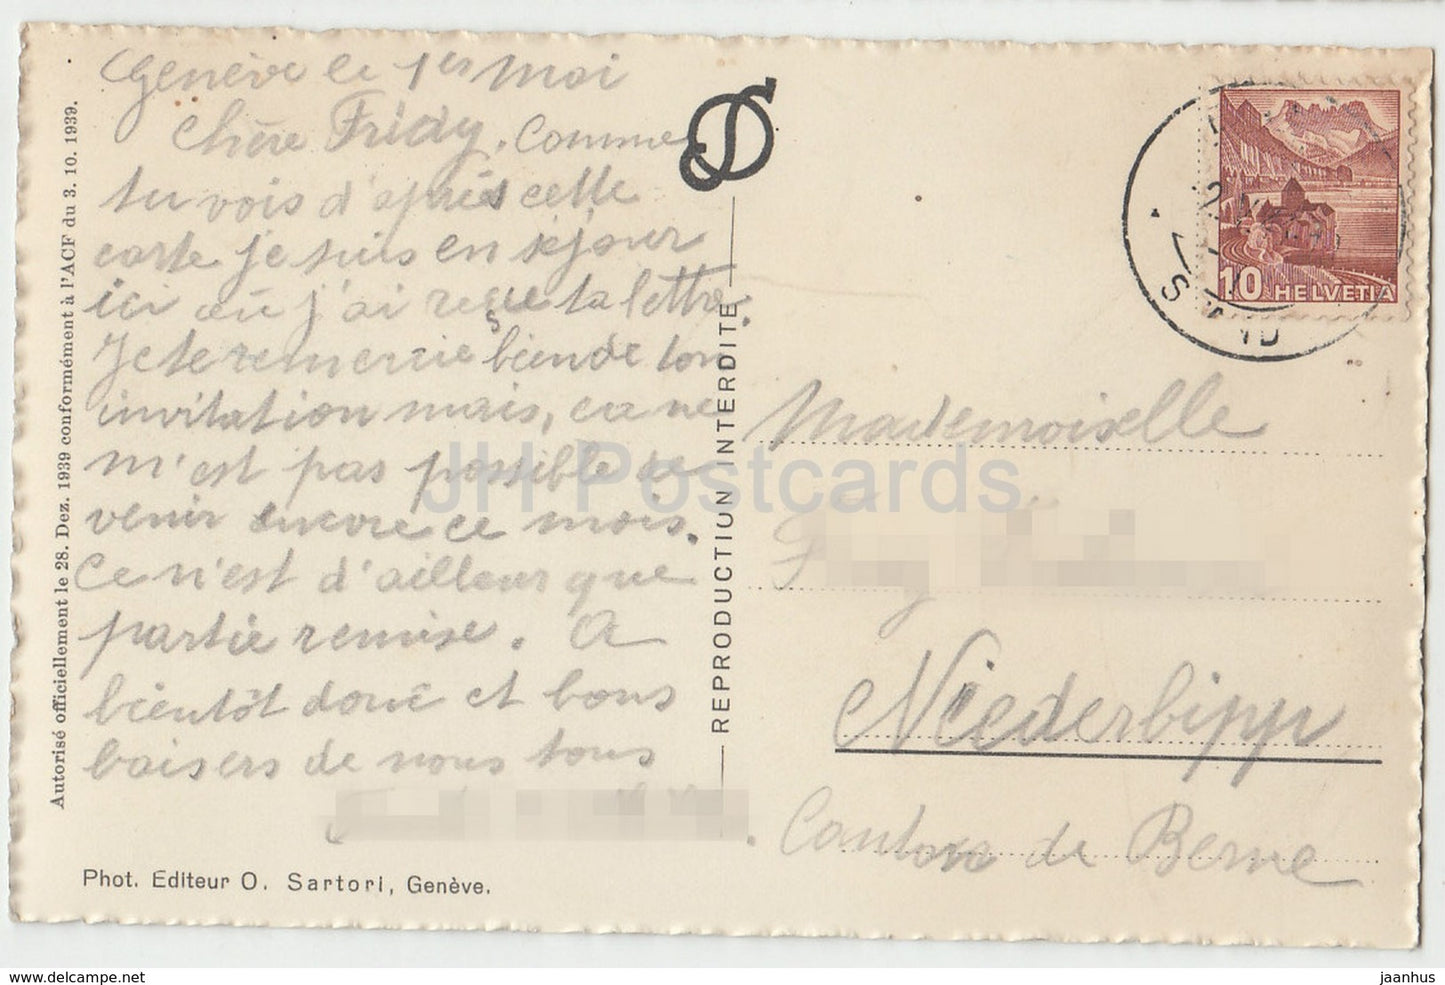 Genève le 1er Mai
Chère Fridy. Comme
tu vois d'après cette
carte je suis en séjour
ici où j'ai reçue ta lettre.
Je te remercie bien de ton
invitation mais, ca ne
m'est pas possible de
venir encore ce mois.
Ce n'est d'ailleur que
partie remise. A
bientôt donc et bons
baisers de nous tous
Phot. Editeur O. Sartori, Genève.
Autorisé officiellement le 28. Dez. 1939 conformément à l'ACF du 3. 10. 1939.
REPRODUCTION INTERDITE
10 HELVETIA
Mademoiselle
Niederbipp
Canton de Berne
JH Postcards
www.delcampe.net
jaanhus